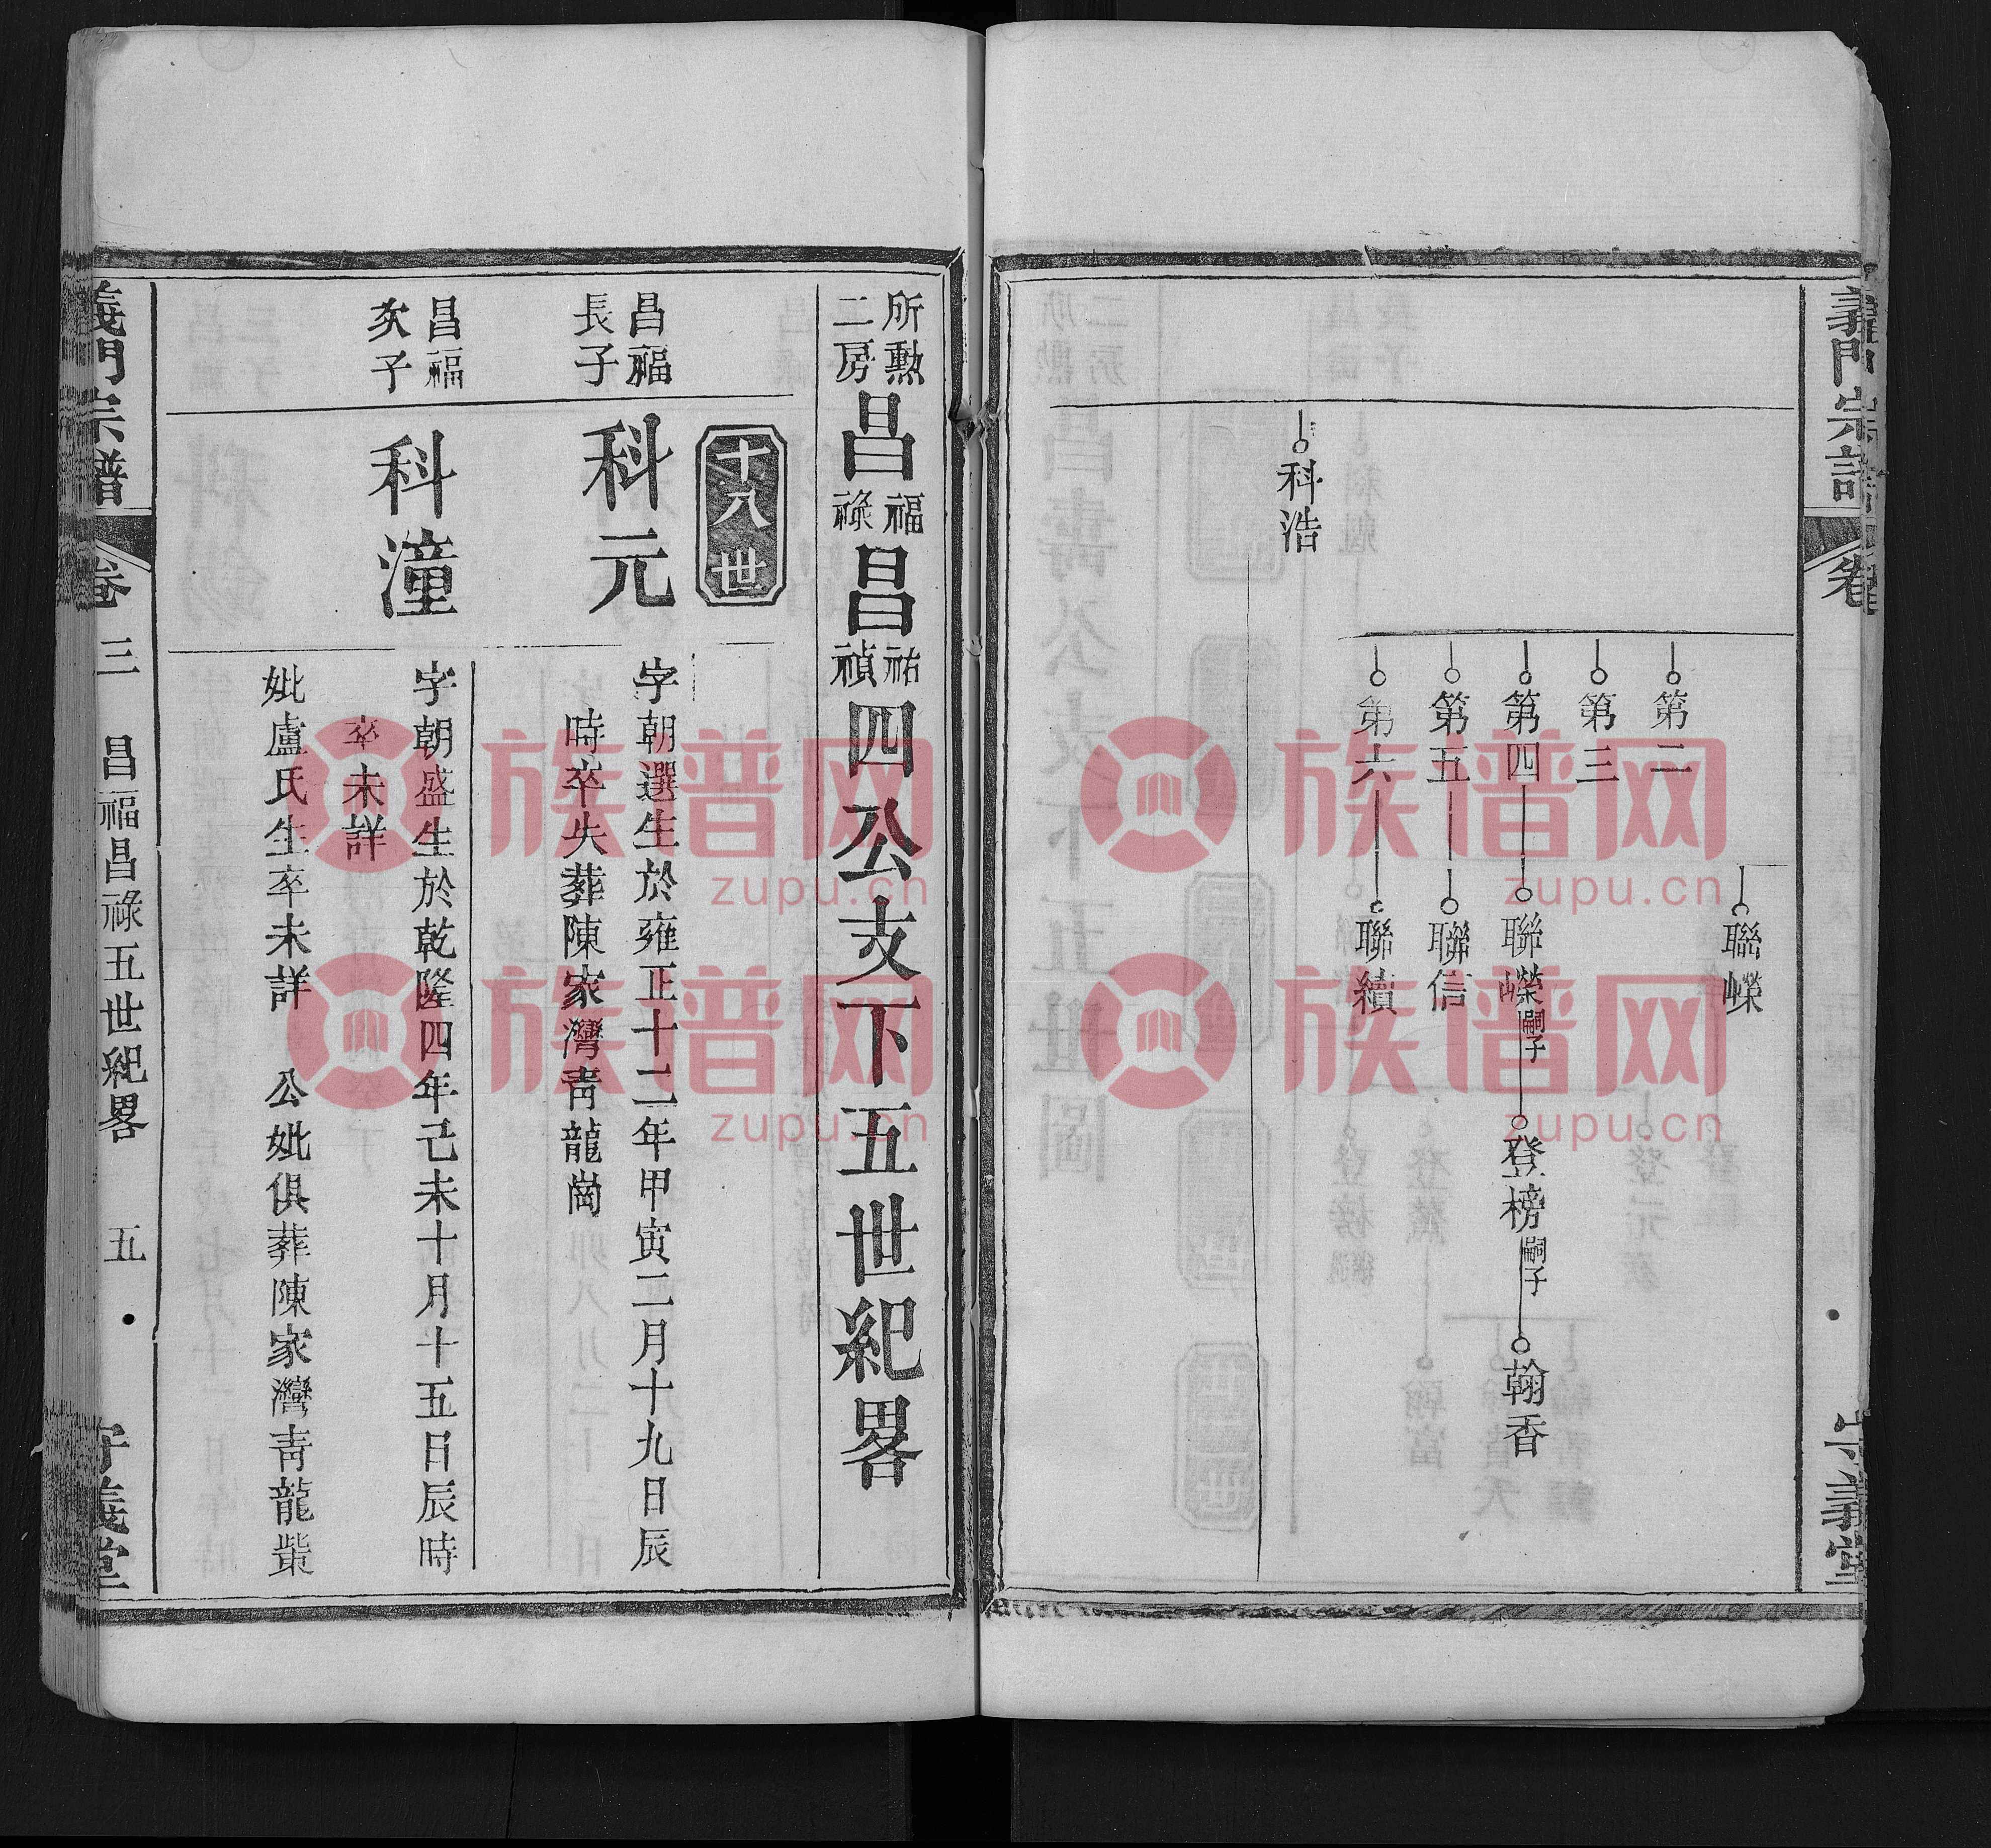 義門宗譜
守義堂
聯嶸
第二
第三
第四
聯嶸嗣子
登榜嗣子
翰香
第五
聯信
第六
聯續
科浩
所勳二房昌福祿昌祐禎四公支下五世紀畧
十八世
昌福長子
科元
字朝選生於雍正十二年甲寅二月十九日辰
時卒失葬陳家灣青龍崗
昌福次子
科潼
字朝盛生於乾隆四年己未十月十五日辰時
卒未詳
妣盧氏生卒未詳 公妣俱葬陳家灣青龍嘴
義門宗譜
卷三 昌福昌祿五世紀畧 五
守義堂
族谱网
zupu.cn
族谱网
zupu.cn
族谱网
zupu.cn
族谱网
zupu.cn